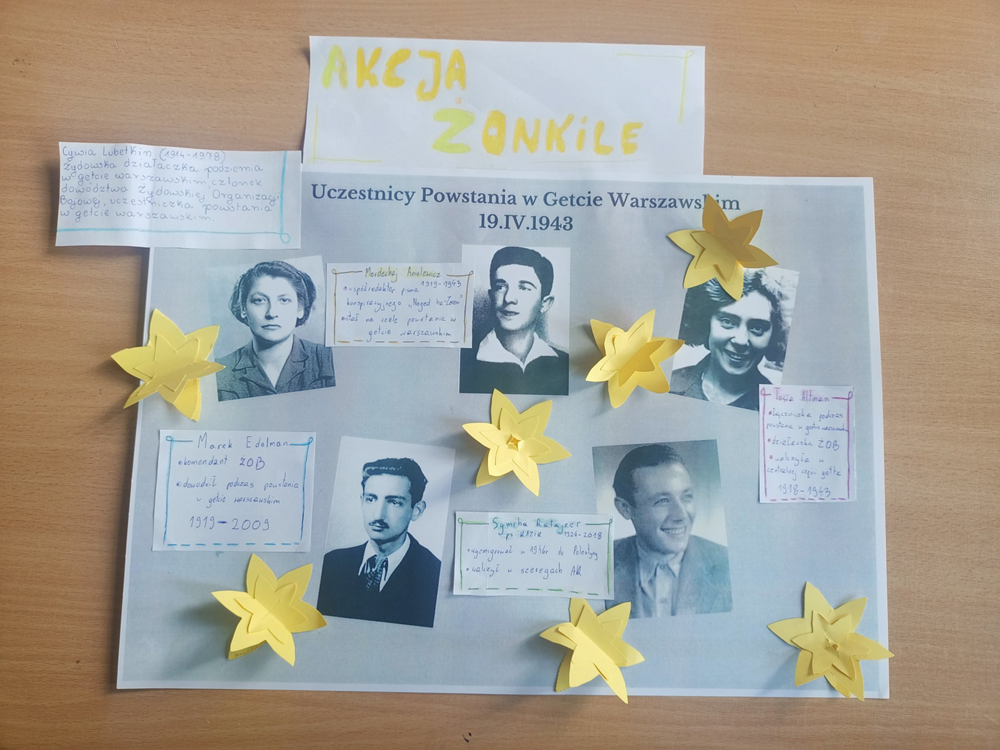 AKCJA
ŻONKILE
Cywia Lubetkin (1914-1978)
Żydowska działaczka podziemia
w getcie warszawskim członek
dowództwa Żydowskiej Organizacji
Bojowej, uczestniczka powstania
w getcie warszawskim
Uczestnicy Powstania w Getcie Warszawskim
19.IV.1943
Mordechaj Anielewicz
1919-1943
współredaktor pisma
konspiracyjnego
stał na czele powstania w
getcie warszawskim
Tosia Altman
łączniczka podczas
powstania w getcie warszawskim
działaczka ŻOB
walczyła w
centralnej części getta
1918-1943
Marek Edelman
komendant ŻOB
dowodził podczas powstania
w getcie warszawskim
1919-2009
Symcha Ratajzer
ps. KAZIK 1924-2018
wyemigrował w 1946r do Palestyny
walczył w szeregach AK